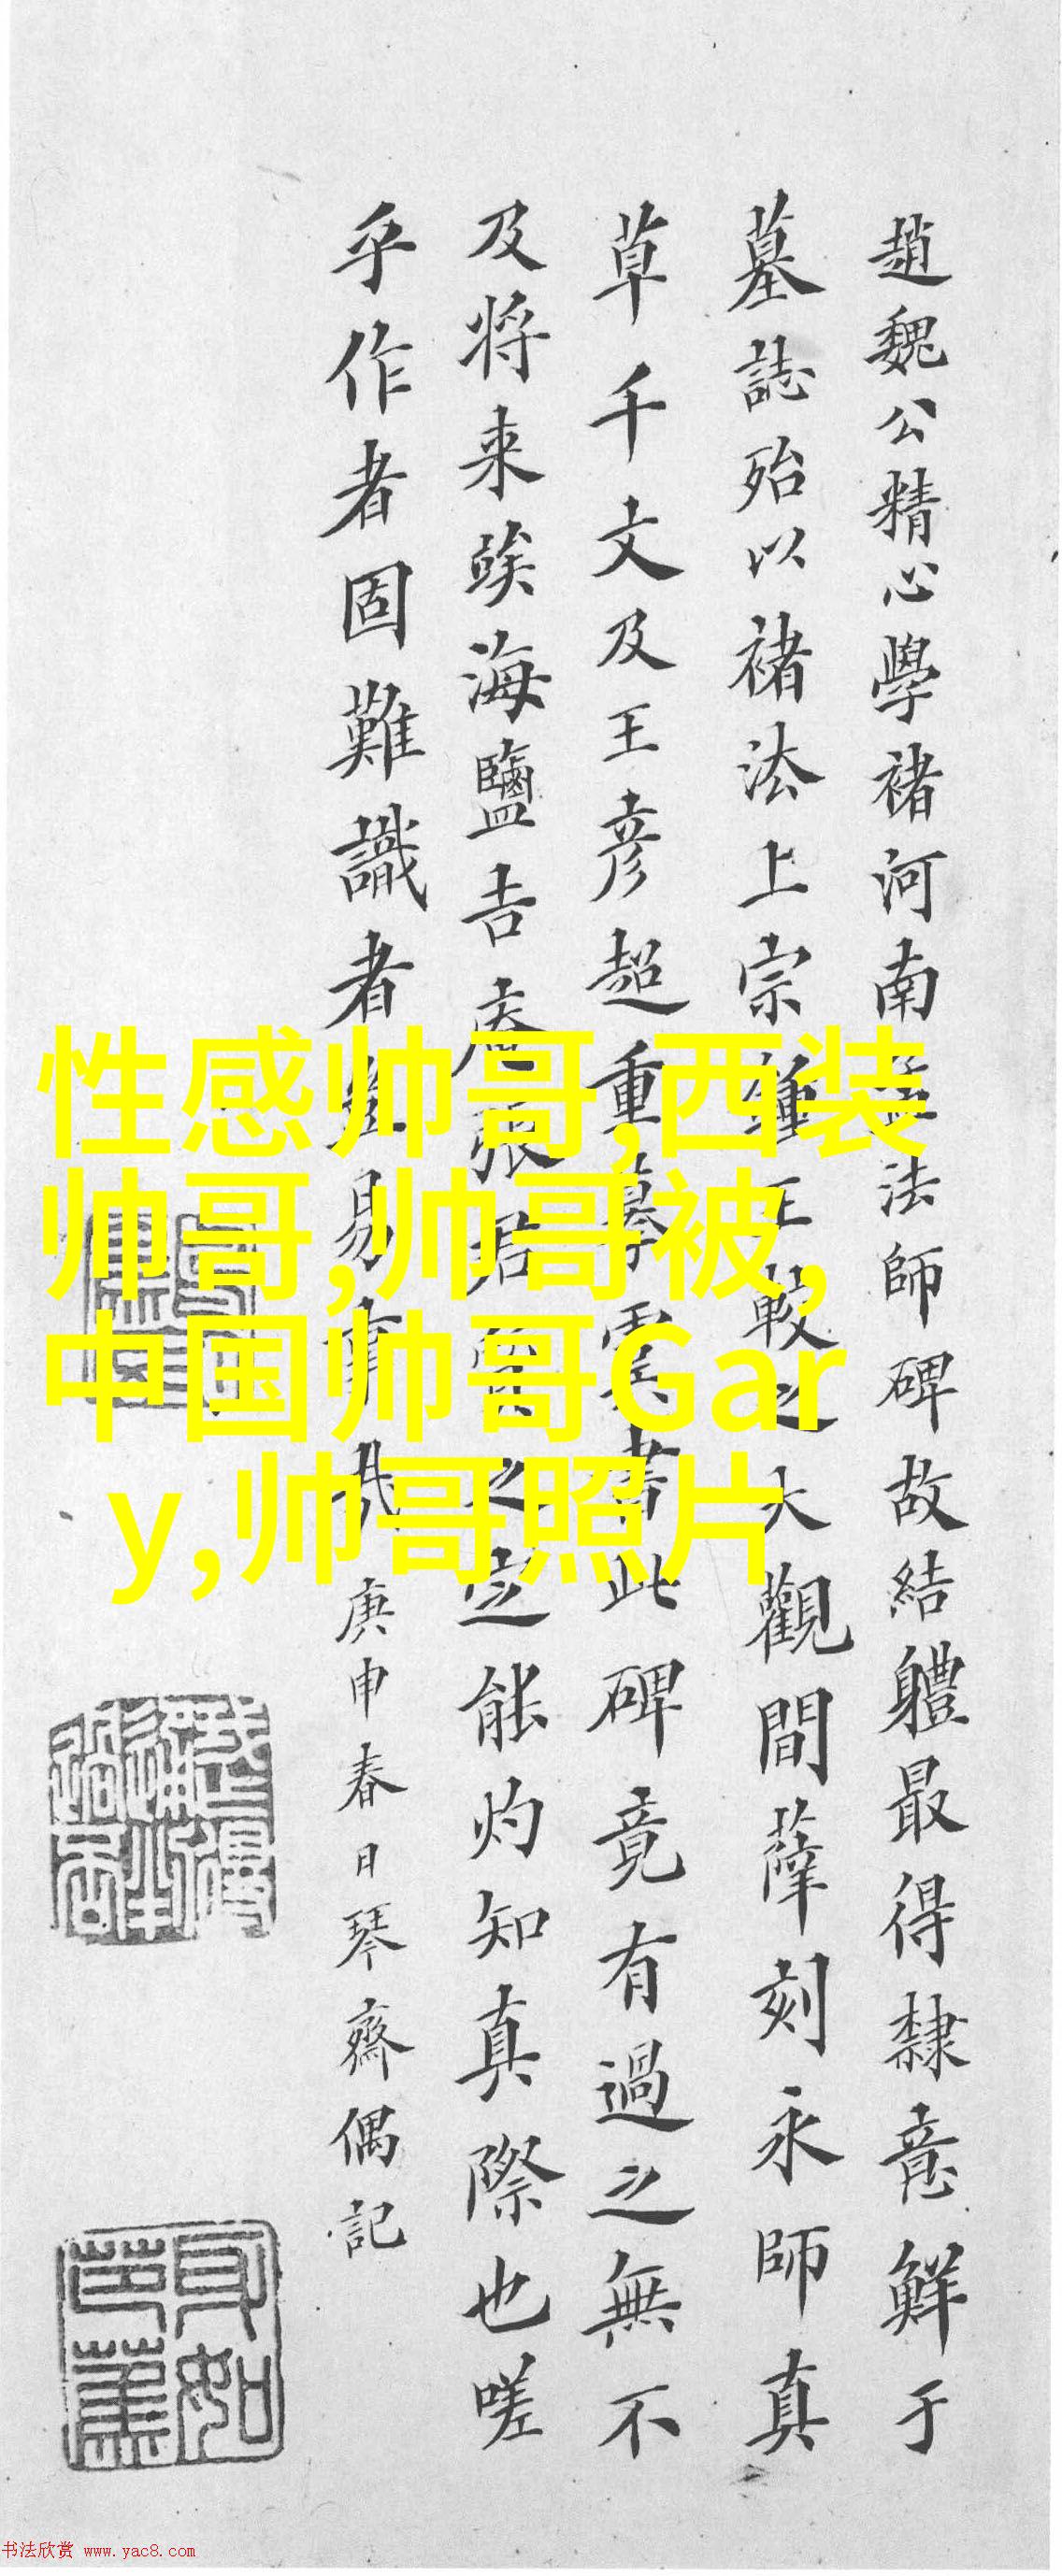 趙魏公精心學褚河南孟法師碑故結軆最得隸意鮮于
墓誌殆以褚法上宗鍾王較之大觀間薛刻永師真
草千文及王彥超重摹虞書此碑竟有過之無不
及将来竢海鹽吉庵張君質之定能灼知真際也嗟
乎作者固難識者豈易事哉庚申春日琴齋偶記
性感帅哥,西装
帅哥,帅哥被,
中国帅哥Gar
y,帅哥照片
书法欣赏 www.yac8.com